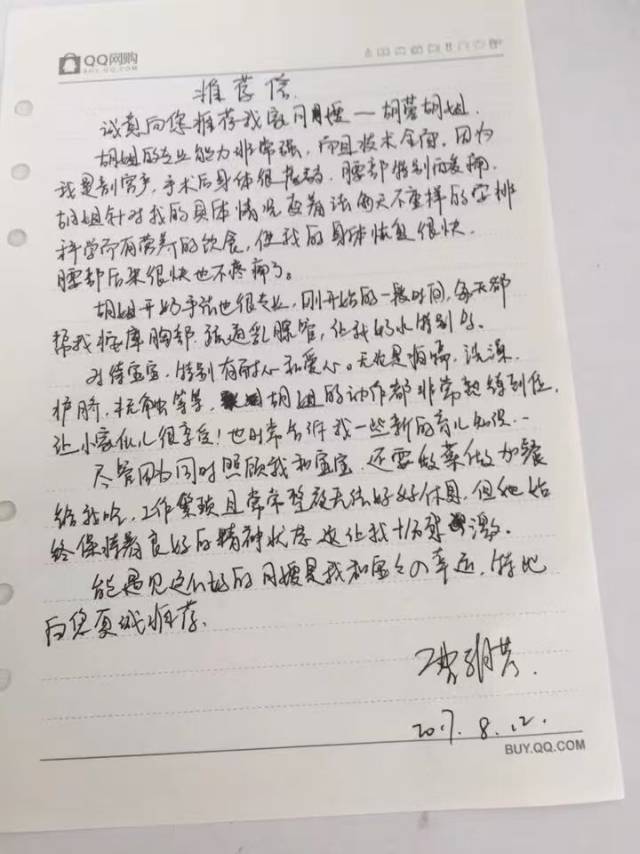 QQ网购
BUY.QQ.COM
推荐信
诚真向您推荐我家月嫂—胡蓉胡姐.
胡姐的专业能力非常强,而且技术全面,因为
我是剖宫产,手术后身体很虚弱,腰部特别酸痛,
胡姐针对我的具体情况变着法每天不重样的安排
科学而有营养的饮食,使我的身体恢复很快.
腰部后来很快也不疼痛了。
胡姐开奶手法也很专业,刚开始的一段时间,每天都
帮我按摩胸部,疏通乳腺管,让我奶水特别多。
对待宝宝,特别有耐心和爱心。无论是拍嗝,洗澡,
护脐,抚触等等,胡姐的动作都非常熟练到位,
让小家伙儿很享受!也时常告诉我一些新的育儿知识...
尽管因为同时照顾我和宝宝,还要做菜做加餐
给我吃,工作繁琐且常常整夜无法好好休息,但她始
终保持着良好的精神状态,这让我十分感激。
能遇见这么好的月嫂是我和宝宝的幸运,特此
向您真诚推荐.
2017.8.12.
BUY.QQ.COM